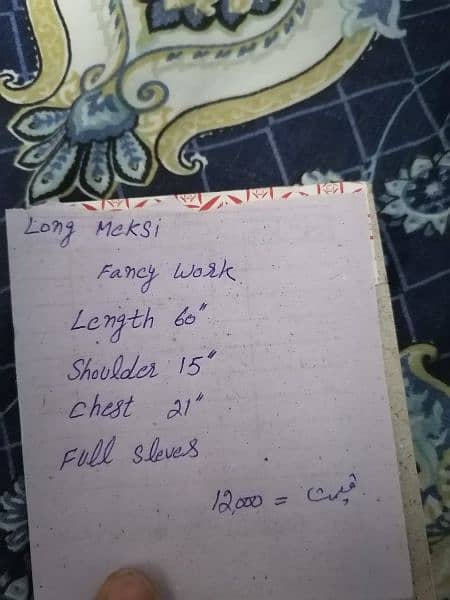 Long Meksi
Fancy Work
Length 60"
Shoulder 15"
Chest 21"
Full Sleves
12,000 = قیمت